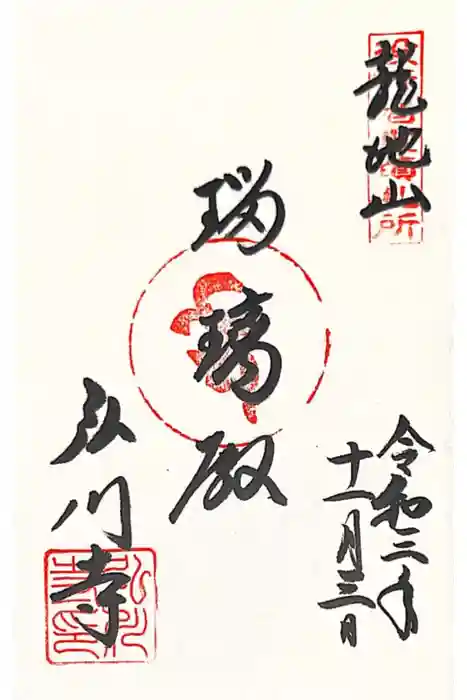 龍池山
令和二年
十一月三日
瑠璃殿
弘川寺